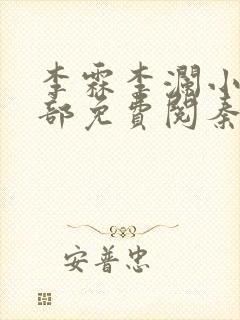 李霖李瀾小
部免費閱秦
安普忠